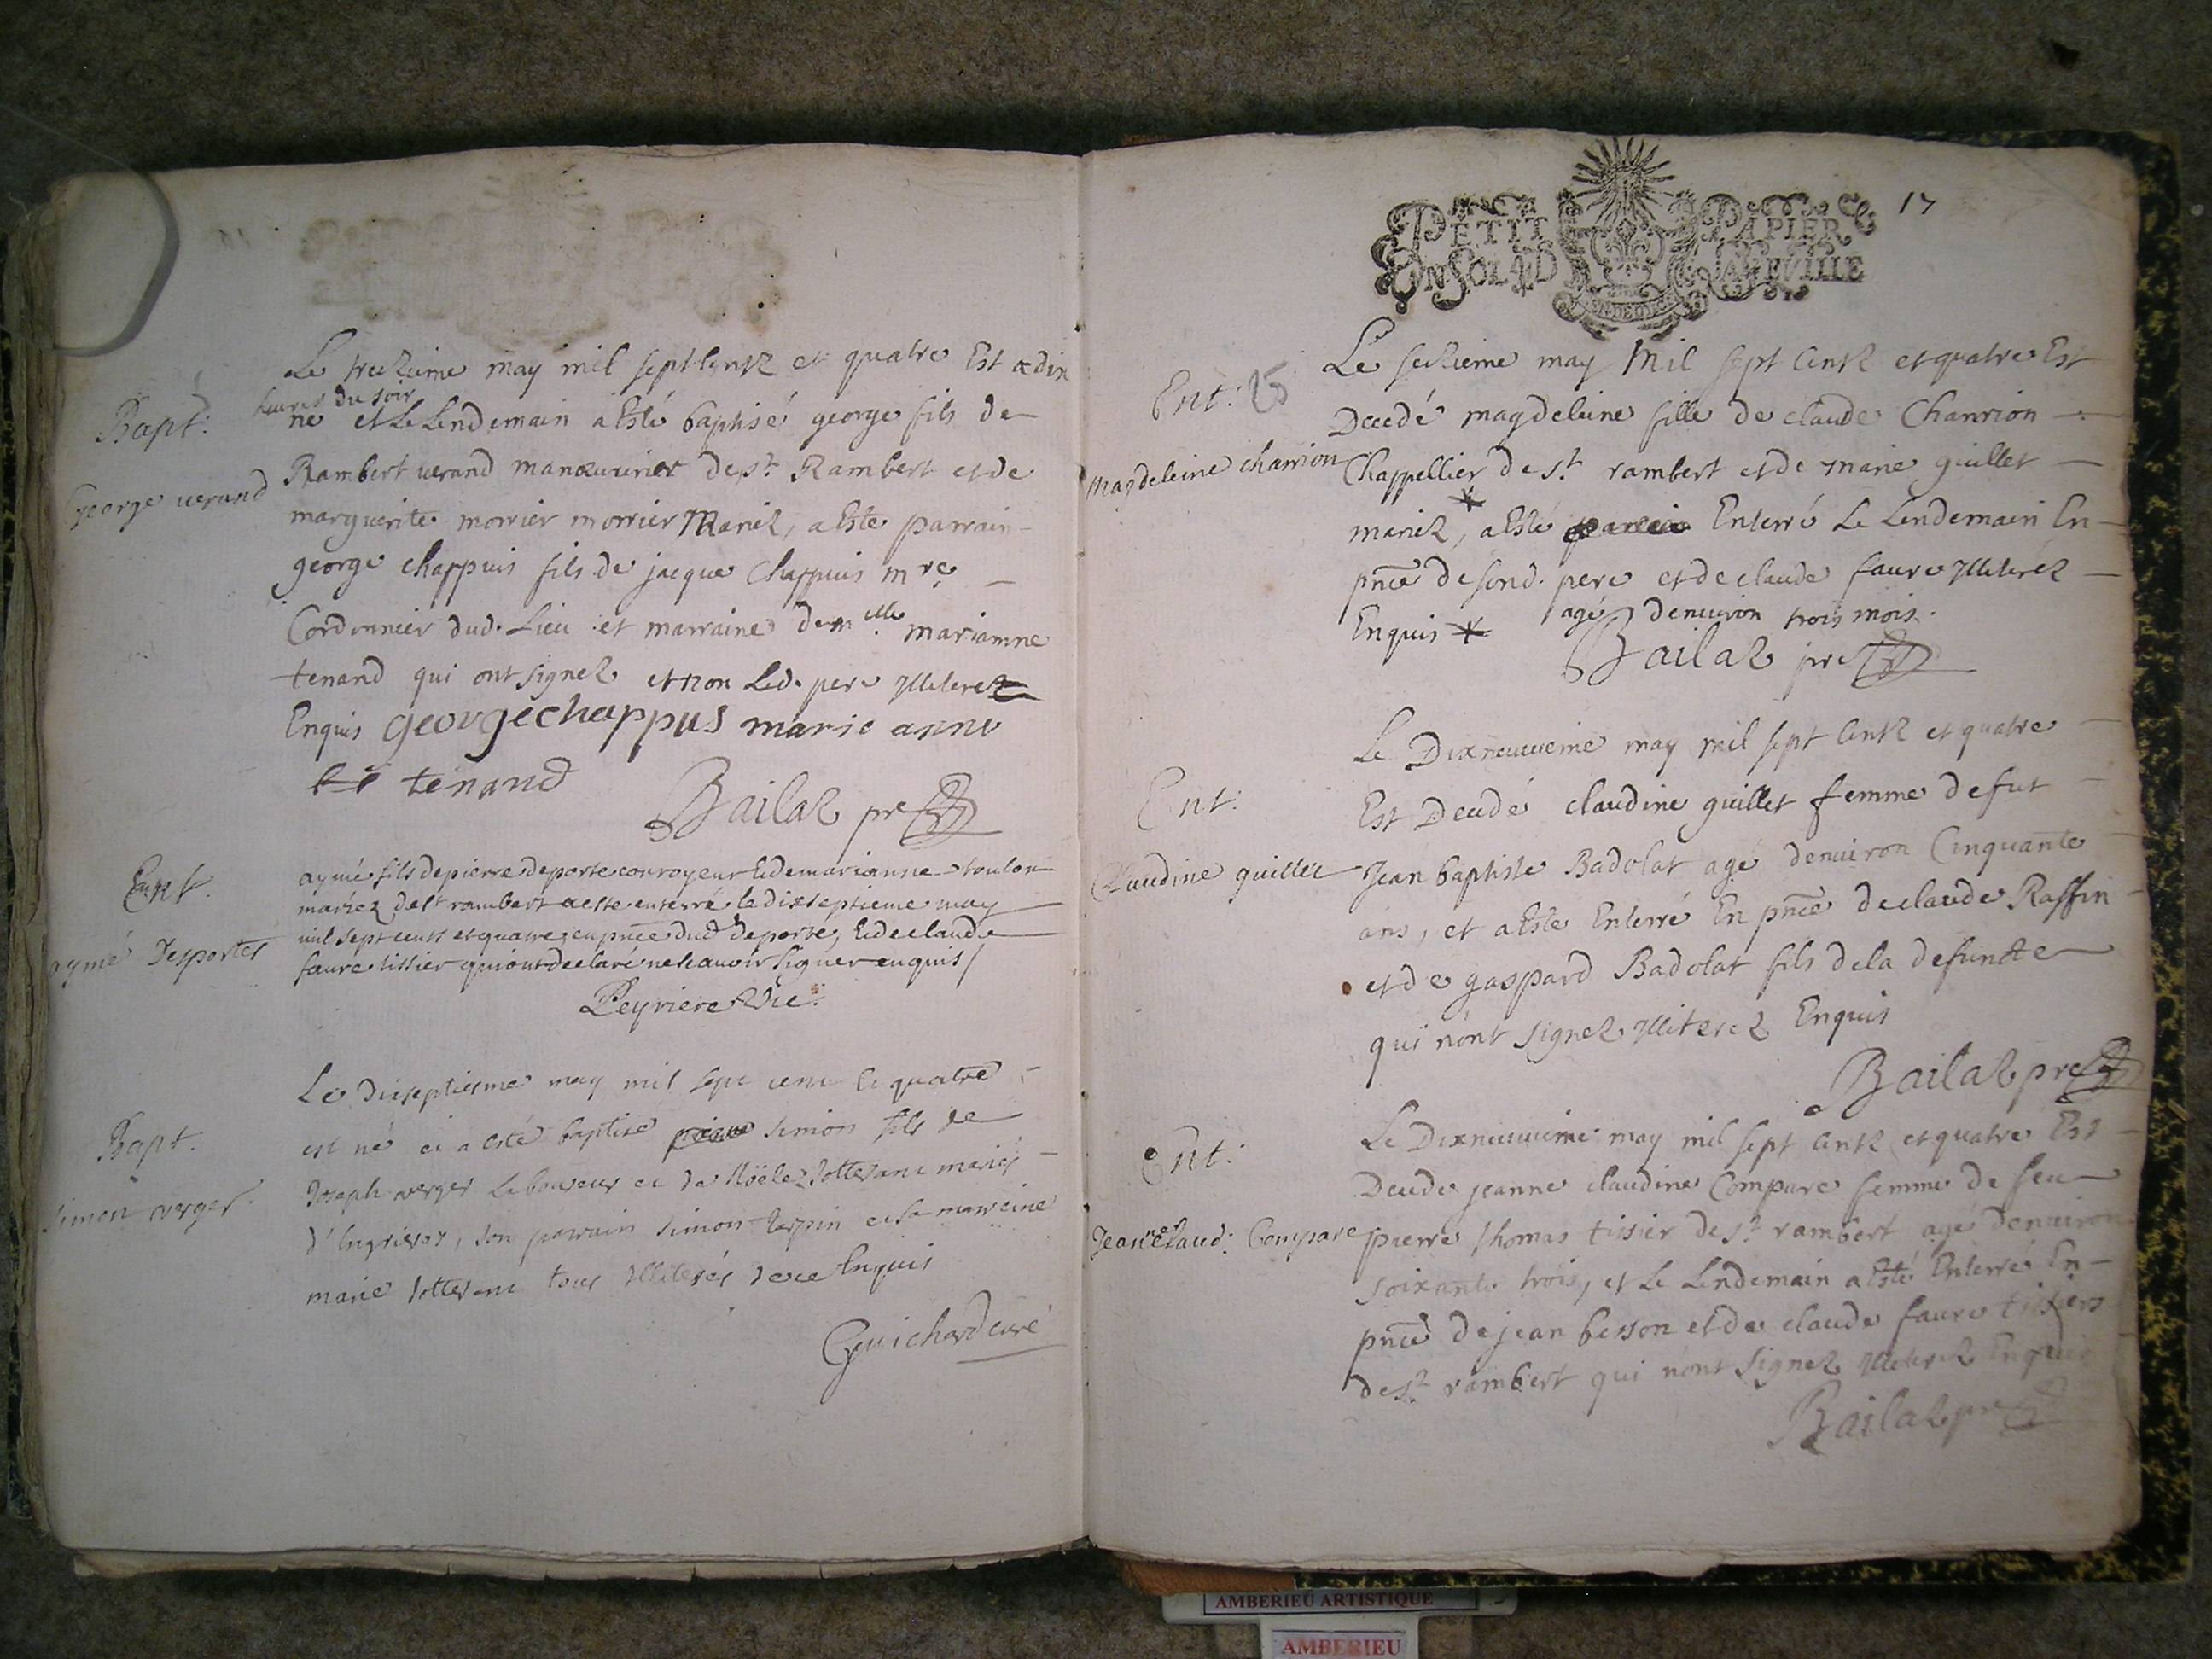 Bapt:
George verand
Le treizieme may mil sept centz et quatre Est a dix
heures du soir
né et Le Lendemain a Esté baptisé george fils de
Rambert verand manœuvrier de st Rambert et de
marguerite morrier morrier Mariez, a Este parrain
george chappuis fils de jacque Chappuis mre
Cordonnier dud. Lieu et marraine demlle mariamne
tenand qui ont signez et non Led. pere Illiterez
Enquis georgechappus marie anne
tenand
Bailaz pre
Ent.
aymé Desportes
aymé fils de pierre deporte conroyeur & de marianne toulon
mariez de st rambert a este enterré le dixseptieme may
mil sept cents et quatre, en pnce dud deporte, & de claude
faure tissier qui ont declaré ne scavoir signer enquis /
Peyriere Vic:
Bapt.
Simon verger.
Le dixseptiesme may mil sept cent et quatre
est né et a esté baptisé simon fils de
Joseph verger Laboureur et de Noële Jottevant mariés
d'Engrieres, son parrain simon tarpin et sa marreine
marie Jottevant tous Illiterés de ce Enquis
Guichard curé
17
PETIT PAPIER
UN SOL 4 D LA FEUILLE
Ent: 25
Magdeleine chanrion
Le seizieme may Mil sept Centz et quatre Est
Decedé magdeleine fille de claude Chanrion
Chappellier de st. rambert et de marie guillet
mariez, * a Esté Enterré Le Lendemain En
pnce de sond. pere et de claude faure Illiterés
Enquis * agé denviron trois mois.
Bailaz pre
Ent:
Claudine guillet
Le Dixneuvieme may mil sept Centz et quatre
Est Decedé claudine guillet femme de fut
Jean baptiste Badolat agé denviron Cinquante
ans, et a Esté Enterré En pnce de claude Raffin
et de gaspard Badolat fils de la defuncte
qui n'ont signez Illiterez Enquis
Bailaz pre
Ent:
Jeanne Claud: Compare
Le Dixneuvieme may mil sept Centz et quatre Est
Decedé jeanne claudine Compare femme de feu
pierre thomas tissier de st rambert agé denviron
soixante trois, et Le Lendemain a Esté Enterré En
pnce de jean besson et de claude faure tissiers
de st rambert qui n'ont signez Illiterez Enquis
Bailaz pre
AMBERIEU ARTISTIQUE
AMBERIEU